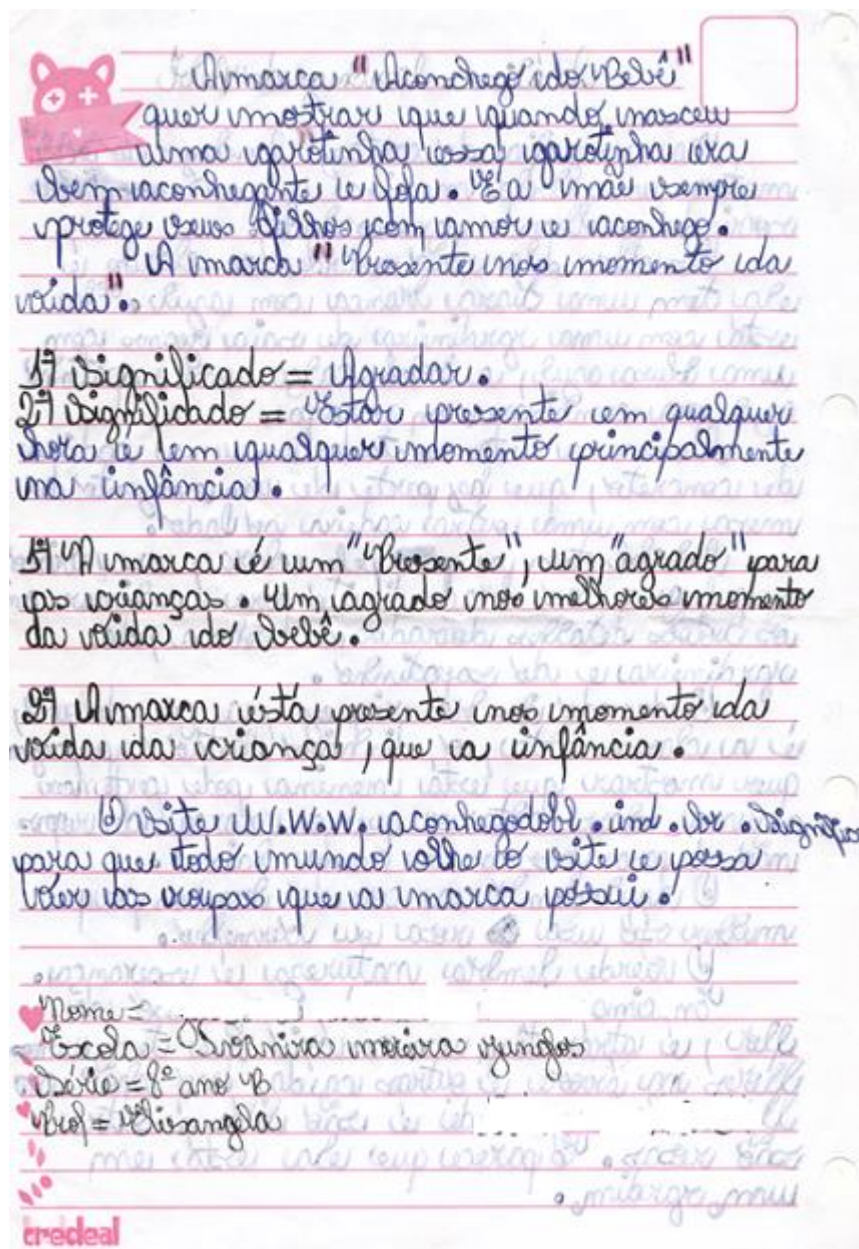 A marca "Aconchego do Bebê"
quer mostrar que quando nasceu
uma garotinha essa garotinha era
bem aconhegante e fofa. E a mãe sempre
protege seus filhos com amor e aconhego.
A marca "Presente nos momento da
vida".
1º Significado = Agradar.
2º Significado = Estar presente em qualquer
hora e em qualquer momento principalmente
na infância.
1º A marca é um "Presente", um "agrado" para
as crianças. Um agrado nos melhores momento
da vida do bebê.
2º A marca está presente nos momento da
vida da criança, que a infância.
O site W.W.W. aconhegodobb. ind. br. Signific
para que todo mundo olhe o site e possa
ver as roupas que a marca possui.
Nome =
Escola = Ivanira moreira
Série = 8º ano B
Prof = Elisangela
credeal